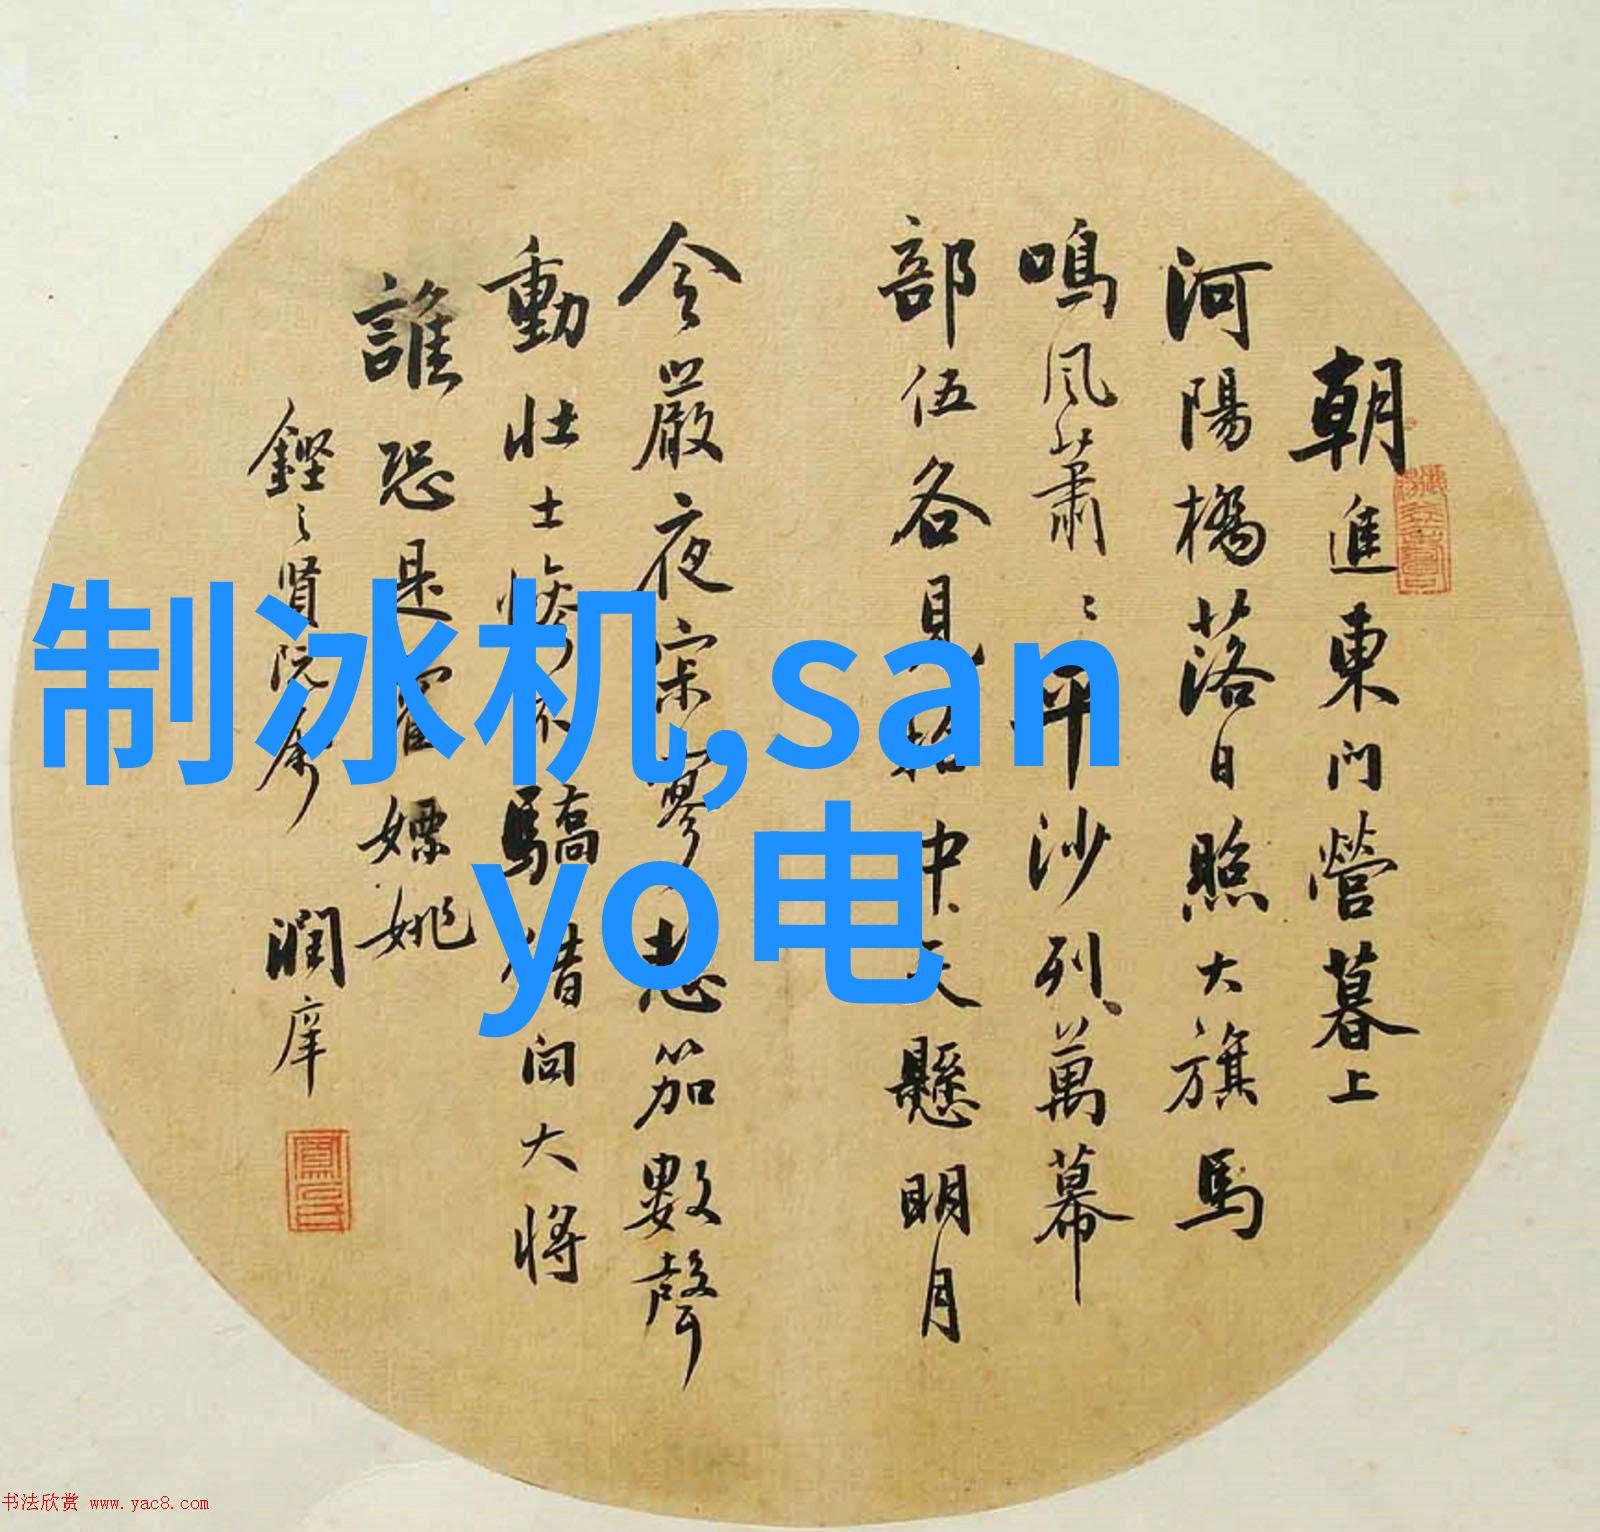 朝進東門營暮上
河陽橋落日照大旗馬
鳴風蕭〻平沙列萬幕
部伍各見招中天懸明月
令嚴夜寂寥悲笳數聲
動壯士慘不驕借問大將
誰恐是霍嫖姚
鏗〻賢阮屬
潤庠
制冰机,san
yo电
书法欣赏 www.yac8.com